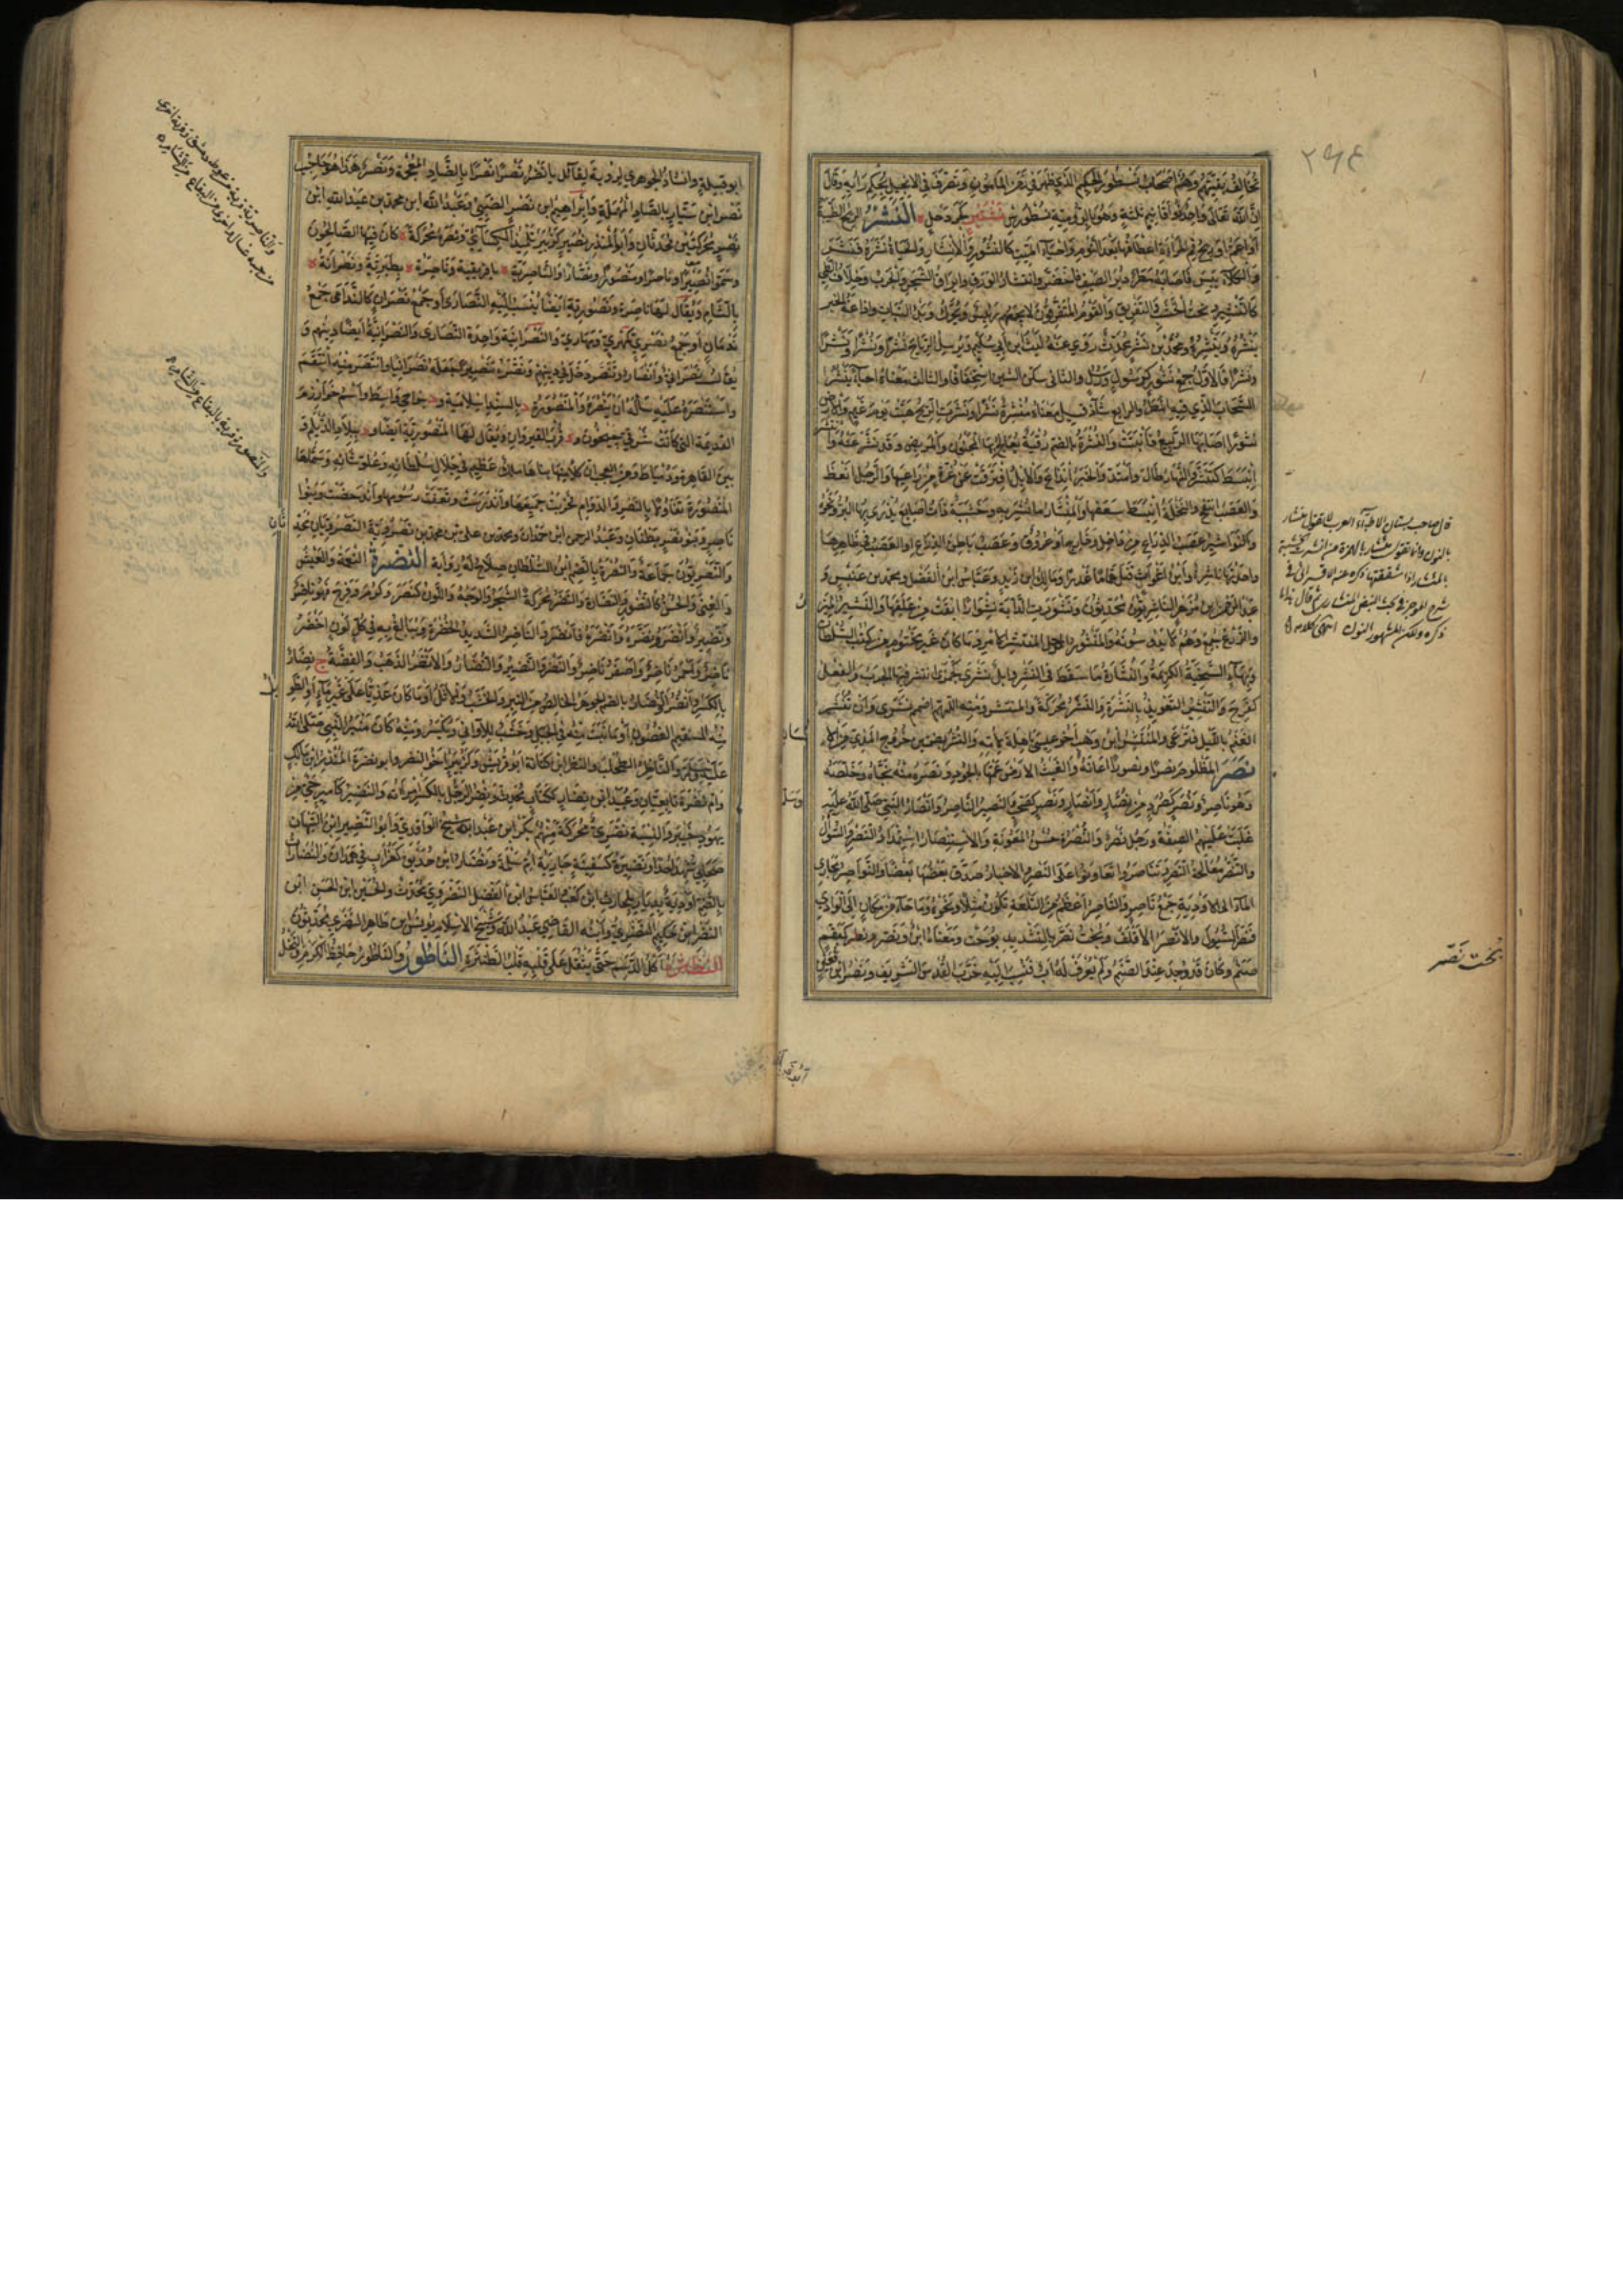 ٢٩٤
تخالف بقيتهم وهم اصحاب نسطور الحكيم الذي ظهر في زمن المامون وتصرف في الانجيل بحكم رايه وقال
ان الله تعالى واحد ذو اقانيم ثلثة وهو بالرومية نسطورس كجردحل النشر الريح الطيبة
او اعم او ريح فم المرأة واعطافها بعد النوم واحياء الميت كالنشور والانشار والحياة نشره فنشر
والكلاء يبس فاصابه مطر دبر الصيف فاخضر وانتشار الورق وايراق الشجر والجرب وخلاف الطي
كالتنشير ونحت الخشب والتفريق والقوم المتفرقون لا يجمعهم رئيس ويحرك وبدء النبات واذاعة الخبر
ينشره وينشره ومحمد بن نشر محدث روى عنه ليث ابن ابي سليم ويرسل الرياح نشرا ونشرا ونشرا
ونشرا فالاول جمع نشور كرسول ورسل والثاني سكن الشين استخفافا والثالث معناه احياء بنشر
السحاب الذي فيه المطر والرابع شاذ قيل معناه منشرة نشرا ونشرت الريح هبت يوم غيم والارض
نشورا اصابها الربيع فانبتت والنشرة بالضم رقية يعالج بها المجنون والمريض وقد نشر عنه وانتشر
انبسط كتنشر والنهار طال وامتد والخبر انذاع والابل افترقت عن غرة من راعيها والرجل انعظ
والعصب انتفخ والنخلة انبسط سعفها والمنشار ما نشر به وخشبة ذات اصابع يذرى بها البر ونحوه
والنواشر عصب الذراع من داخل وخارج او عروق وعصب باطن الذراع او العصب في ظاهرها
واحدتها ناشرة وابن اغواث قتل هماما غدرا ومالك ابن زيد وعباس ابن الفضل ومحمد بن عنبس و
عبد الرحمن ابن مزهر الناشريون محدثون ونشورت الدابة نشوارا ابقت من علفها والنشير المئزر
والزرع جمع وهم لا يدوسونه والمنشور الرجل المنتشر الامر وما كان غير مختوم من كتب السلطان
وبهاء السخية الكريمة والنشارة ما سقط في النشر وابل نشرى كجمزى انتشر فيها الجرب والفعل
كفرح والتنشير التعويذ بالنشرة والنشر محركة والمنتشر ومنه اللهم اضمم نشري وان تنتشر
الغنم بالليل فترعى والمنتشر ابن وهب اخو باهلة لامه والنشر بضمتين خروج المذي من
نصر المظلوم نصرا ونصورا اعانه والغيث الارض عمها بالجود ونصره منه نجاه وخلصه
وهو ناصر ونصر كصرد من نصار وانصار ونصر كصحب والنصير الناصر وانصار النبي صلى الله عليه
غلبت عليهم الصفة ورجل نصر والنصرة حسن المعونة والاستنصار استمداد النصر والسؤال
والتنصر معالجة النصر وتناصروا تعاونوا على النصر والاخبار صدق بعضها بعضا والنواصر مجاري
الماء الى الاودية جمع ناصر والناصر اعظم من التلعة تكون ميلا ونحوه وما جاء من مكان الى الوادي
فنصر السيول والانصر الاقلف وبخت نصر بالتشديد بوخت ومعناه ابن ونصر كبقم
صنم وكان قد وجد عند الصنم ولم يعرف له اب فنسب اليه خرب القدس الشريف ونصر ابن قعين
قال صاحب بستان الاطباء العرب لا تقول منشار
بالنون وانما تقول مئشار بالهمزة من اشرت الخشبة
اذا شققتها ذكره
شرح الموجز في بحث النبض المنشاري ثم قال
ذكره ولكن المشهور النون انتهى كلامه
بخت نصر
ابو قبيلة
ابو قبيلة وانشاد الجوهري لرؤبة لقائل يا نصر نصرا نصرا بالضاد المعجمة ونصر هذا هو حاجب
نصر ابن سيار بالصاد المهملة وابراهيم ابن نصر الضبي وعبد الله ابن محمد بن عبد الله ابن
نصر محركتين محدثان وابو المنذر نصير كزبير تلميذ الكسائي ونصرة محركة كان فيها الصالحون
وسموا نصيرا وناصرا ومنصورا ونصارا والناصرية بافريقية وناصرة بطبرية ونصرانة
بالشام ويقال لها ناصرة ونصورية ايضا ينسب اليها النصارى او جمع نصران كالندامى جمع
ندمان او جمع نصري كمهري ومهارى والنصرانية واحدة النصارى والنصرانية ايضا دينهم و
يقال نصراني وانصار وتنصر دخل في دينهم ونصره تنصيرا جعله نصرانيا وانتصر منه انتقم
واستنصره عليه ساله ان ينصره والمنصورة بالسند اسلامية و بنواحي واسط واسم خوارزم
القديمة التي كانت شرقي جيحون و قرب القيروان ويقال لها المنصورية ايضا و ببلاد الديلم و
بين القاهرة ودمياط ومن العجب ان كلا منها بناها ملك عظيم في جلال سلطانه وعلو شانه وسماها
المنصورة تفاؤلا بالنصر والدوام فخربت جميعها واندرست وتعفت رسومها واندحضت وبنوا
ناصر وبنو نصر بطنان وعبد الرحمن ابن حمدان ومحمد بن علي بن محمد بن نصرويه النصرويان محدثان
والنصريون جماعة والنصرة بالضم ابن السلطان صلاح له رواية النضرة النعمة والعيش
والغنى والحسن كالنضور والنضارة والنضر محركة نضر الشجر والوجه واللون كنصر وكرم وفرح فهو ناضر
ونضير وانضر ونضره الله ونضره وانضره فانضر والناضر الشديد الخضرة ويبالغ به في كل لون اخضر
ناضر واحمر ناضر واصفر ناضر والنضر والنضير والنضار والانضر الذهب والفضة ج نضار
بالكسر وانضر والنضار بالضم الجوهر الخالص من التبر والخشب والاثل او ما كان عذيا على غير ماء او الطويل
منه المستقيم الغصون او ما نبت منه في الجبل وخشب للاواني ويكسر ومنه كان منبر النبي صلى الله
عليه وسلم والناضر الطحلب والنضر ابن كنانة ابو قريش وكزبير اخو النضر وابو نضرة المنذر ابن مالك
وام نضرة تابعيان وعبيد ابن نضار ككتاب محدث ونضر الرجل بالكسر امرأته والنضير كامير حي من
يهود خيبر والنسبة نضري محركة منهم بكر ابن عبد الله شيخ الواقدي وابو النضير ابن التيهان
صحابي شهد احدا ونضيرة كسفينة جارية ام سلمة ونضار ابن حديق كغراب في همدان والنضارات
بالضم اودية بديار بلحارث ابن كعب والعباس ابن الفضل النضروي محدث والحسين ابن الحسن ابن
النضر ابن حكيم النضري وابنه القاضي عبد الله وشيخ الاسلام يونس ابن طاهر النضري محدثون
اكل الدسم حتى يثقل على قلبه قلب الطنثرة الناطور والناطر حافظ الكرم والنخل
والمنصورة قرية بالبقاع من الشام